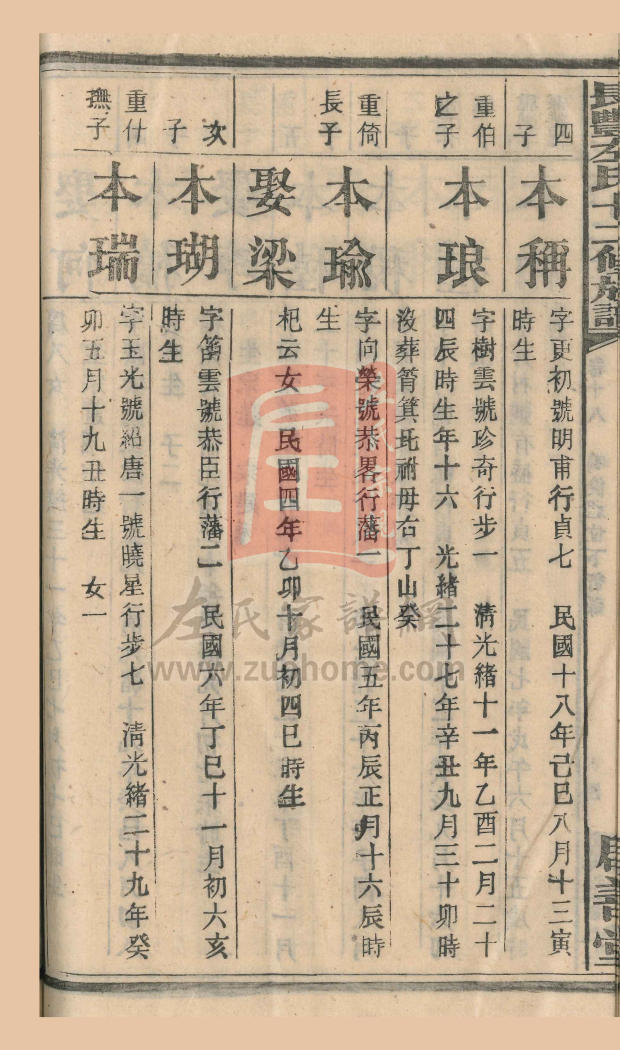 長豐左氏十六修族譜
四子
本稱
字更初號明甫行貞七 民國十八年己巳八月十三寅
時生
重伯之子
本琅
字樹雲號珍奇行步一 淸光緒十一年乙酉二月二十
四辰時生年十六 光緒二十七年辛丑九月三十卯時
沒葬筲箕坵祔母右丁山癸
重倚長子
本瑜
字向榮號恭畧行藩一 民國五年丙辰正月十六辰時
生
娶梁
杞云女 民國四年乙卯十月初四巳時生
次子
本瑚
字笛雲號恭臣行藩二 民國六年丁巳十一月初六亥
時生
重什撫子
本瑞
字玉光號紹唐一號曉星行步七 淸光緒二十九年癸
卯五月十九丑時生 女一
左氏家譜網
www.zuohome.com